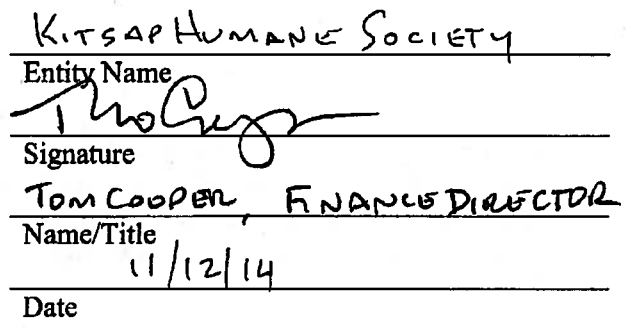 KITSAP HUMANE SOCIETY
Entity Name
Signature
TOM COOPER, FINANCE DIRECTOR
Name/Title
11/12/14
Date